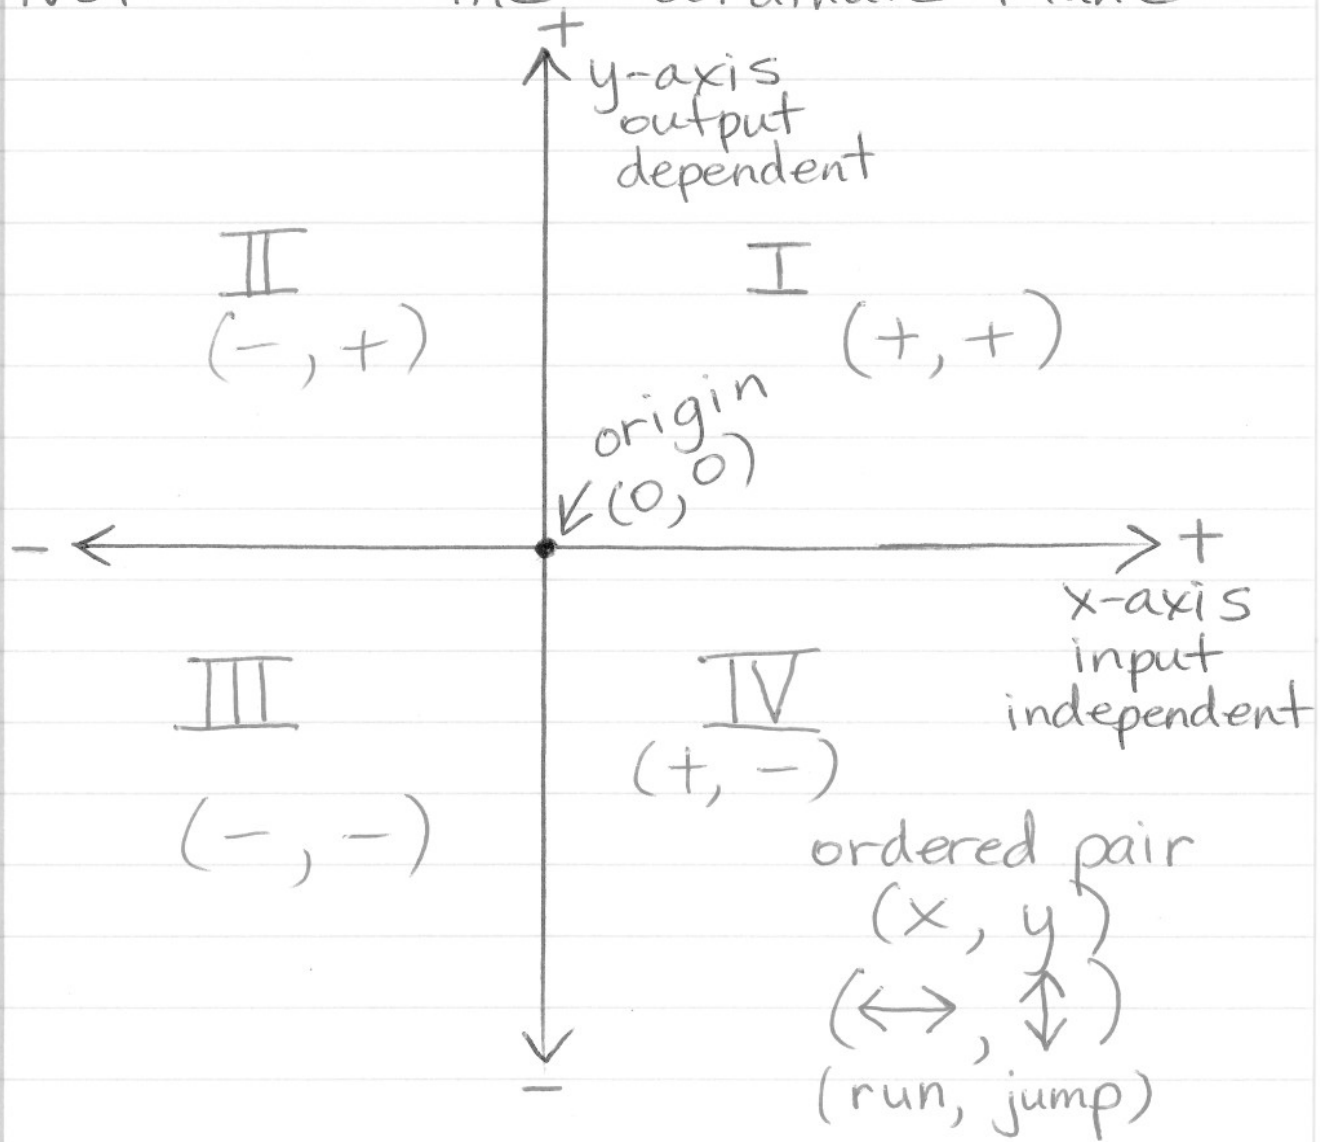 +
y-axis
output
dependent
II
I
(-, +)
(+, +)
origin
(0, 0)
-
+
x-axis
input
independent
III
IV
(+, -)
(-, -)
ordered pair
(x, y)
(↔, ↕)
(run, jump)
-